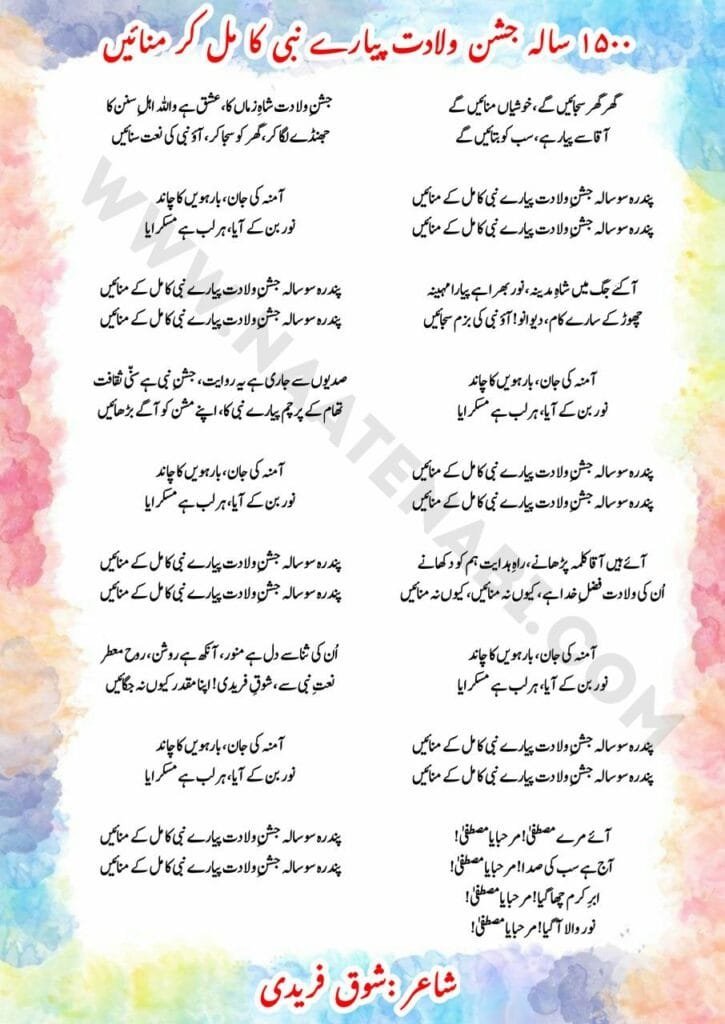 ۱۵۰۰ سالہ جشن ولادت پیارے نبی کا مل کر منائیں
گھر گھر سجائیں گے، خوشیاں منائیں گے
آقا سے پیار ہے، سب کو بتائیں گے
پندرہ سو سالہ جشنِ ولادت پیارے نبی کا مل کے منائیں
پندرہ سو سالہ جشنِ ولادت پیارے نبی کا مل کے منائیں
آگئے جگ میں شاہِ مدینہ، نور بھرا ہے پیارا مہینہ
چھوڑ کے سارے کام، دیوانو! آؤ نبی کی بزم سجائیں
آمنہ کی جان، بارہویں کا چاند
نور بن کے آیا، ہر لب ہے مسکرایا
پندرہ سو سالہ جشنِ ولادت پیارے نبی کا مل کے منائیں
پندرہ سو سالہ جشنِ ولادت پیارے نبی کا مل کے منائیں
آئے ہیں آقا کلمہ پڑھانے، راہِ ہدایت ہم کو دکھانے
اُن کی ولادت فضلِ خدا ہے، کیوں نہ منائیں، کیوں نہ منائیں
آمنہ کی جان، بارہویں کا چاند
نور بن کے آیا، ہر لب ہے مسکرایا
پندرہ سو سالہ جشنِ ولادت پیارے نبی کا مل کے منائیں
پندرہ سو سالہ جشنِ ولادت پیارے نبی کا مل کے منائیں
آئے مرے مصطفیٰ! مرحبا یا مصطفیٰ!
آج ہے سب کی صدا! مرحبا یا مصطفیٰ!
ابرِ کرم چھا گیا! مرحبا یا مصطفیٰ!
نور والا آ گیا! مرحبا یا مصطفیٰ!
جشنِ ولادت شاہِ زماں کا، عشق ہے واللہ اہلِ سنن کا
جھنڈے لگا کر، گھر کو سجا کر، آؤ نبی کی نعت سنائیں
آمنہ کی جان، بارہویں کا چاند
نور بن کے آیا، ہر لب ہے مسکرایا
پندرہ سو سالہ جشنِ ولادت پیارے نبی کا مل کے منائیں
پندرہ سو سالہ جشنِ ولادت پیارے نبی کا مل کے منائیں
صدیوں سے جاری ہے یہ روایت، جشنِ نبی ہے سنّی ثقافت
تھام کے پرچم پیارے نبی کا، اپنے مشن کو آگے بڑھائیں
آمنہ کی جان، بارہویں کا چاند
نور بن کے آیا، ہر لب ہے مسکرایا
پندرہ سو سالہ جشنِ ولادت پیارے نبی کا مل کے منائیں
پندرہ سو سالہ جشنِ ولادت پیارے نبی کا مل کے منائیں
اُن کی ثنا سے دل ہے منور، آنکھ ہے روشن، روح معطر
نعتِ نبی سے، شوقِ فریدی! اپنا مقدر کیوں نہ جگائیں
آمنہ کی جان، بارہویں کا چاند
نور بن کے آیا، ہر لب ہے مسکرایا
پندرہ سو سالہ جشنِ ولادت پیارے نبی کا مل کے منائیں
پندرہ سو سالہ جشنِ ولادت پیارے نبی کا مل کے منائیں
شاعر :شوق فریدی
WWW.NAATENABI.COM